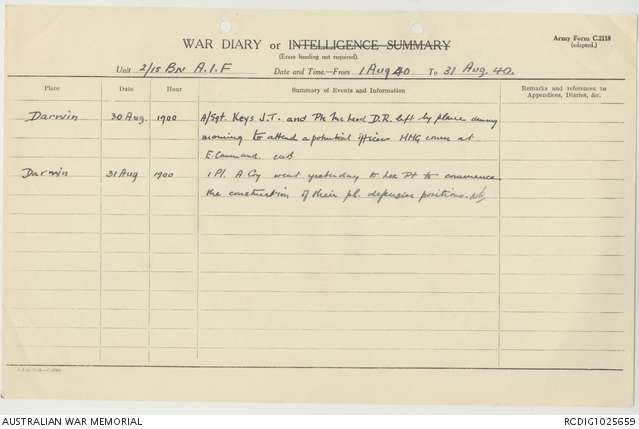 Army Form C.2118
(adapted.)
WAR DIARY or INTELLIGENCE SUMMARY
(Erase heading not required).
Unit 2/15 BN A.I.F Date and Time—From 1 Aug 40 To 31 Aug. 40.
Place Date Hour Summary of Events and Information Remarks and references to Appendices, Diaries, &c.
Darwin 30 Aug. 1900 A/Sgt. Keys J.T. and Pte D.R. left by plane during
morning to attend a potential officers HMG course at
E. Command.
Darwin 31 Aug 1900 1 Pl. A Coy went yesterday to Lee Pt to commence
the construction of their pl. defensive positions.
AUSTRALIAN WAR MEMORIAL
RCDIG1025659